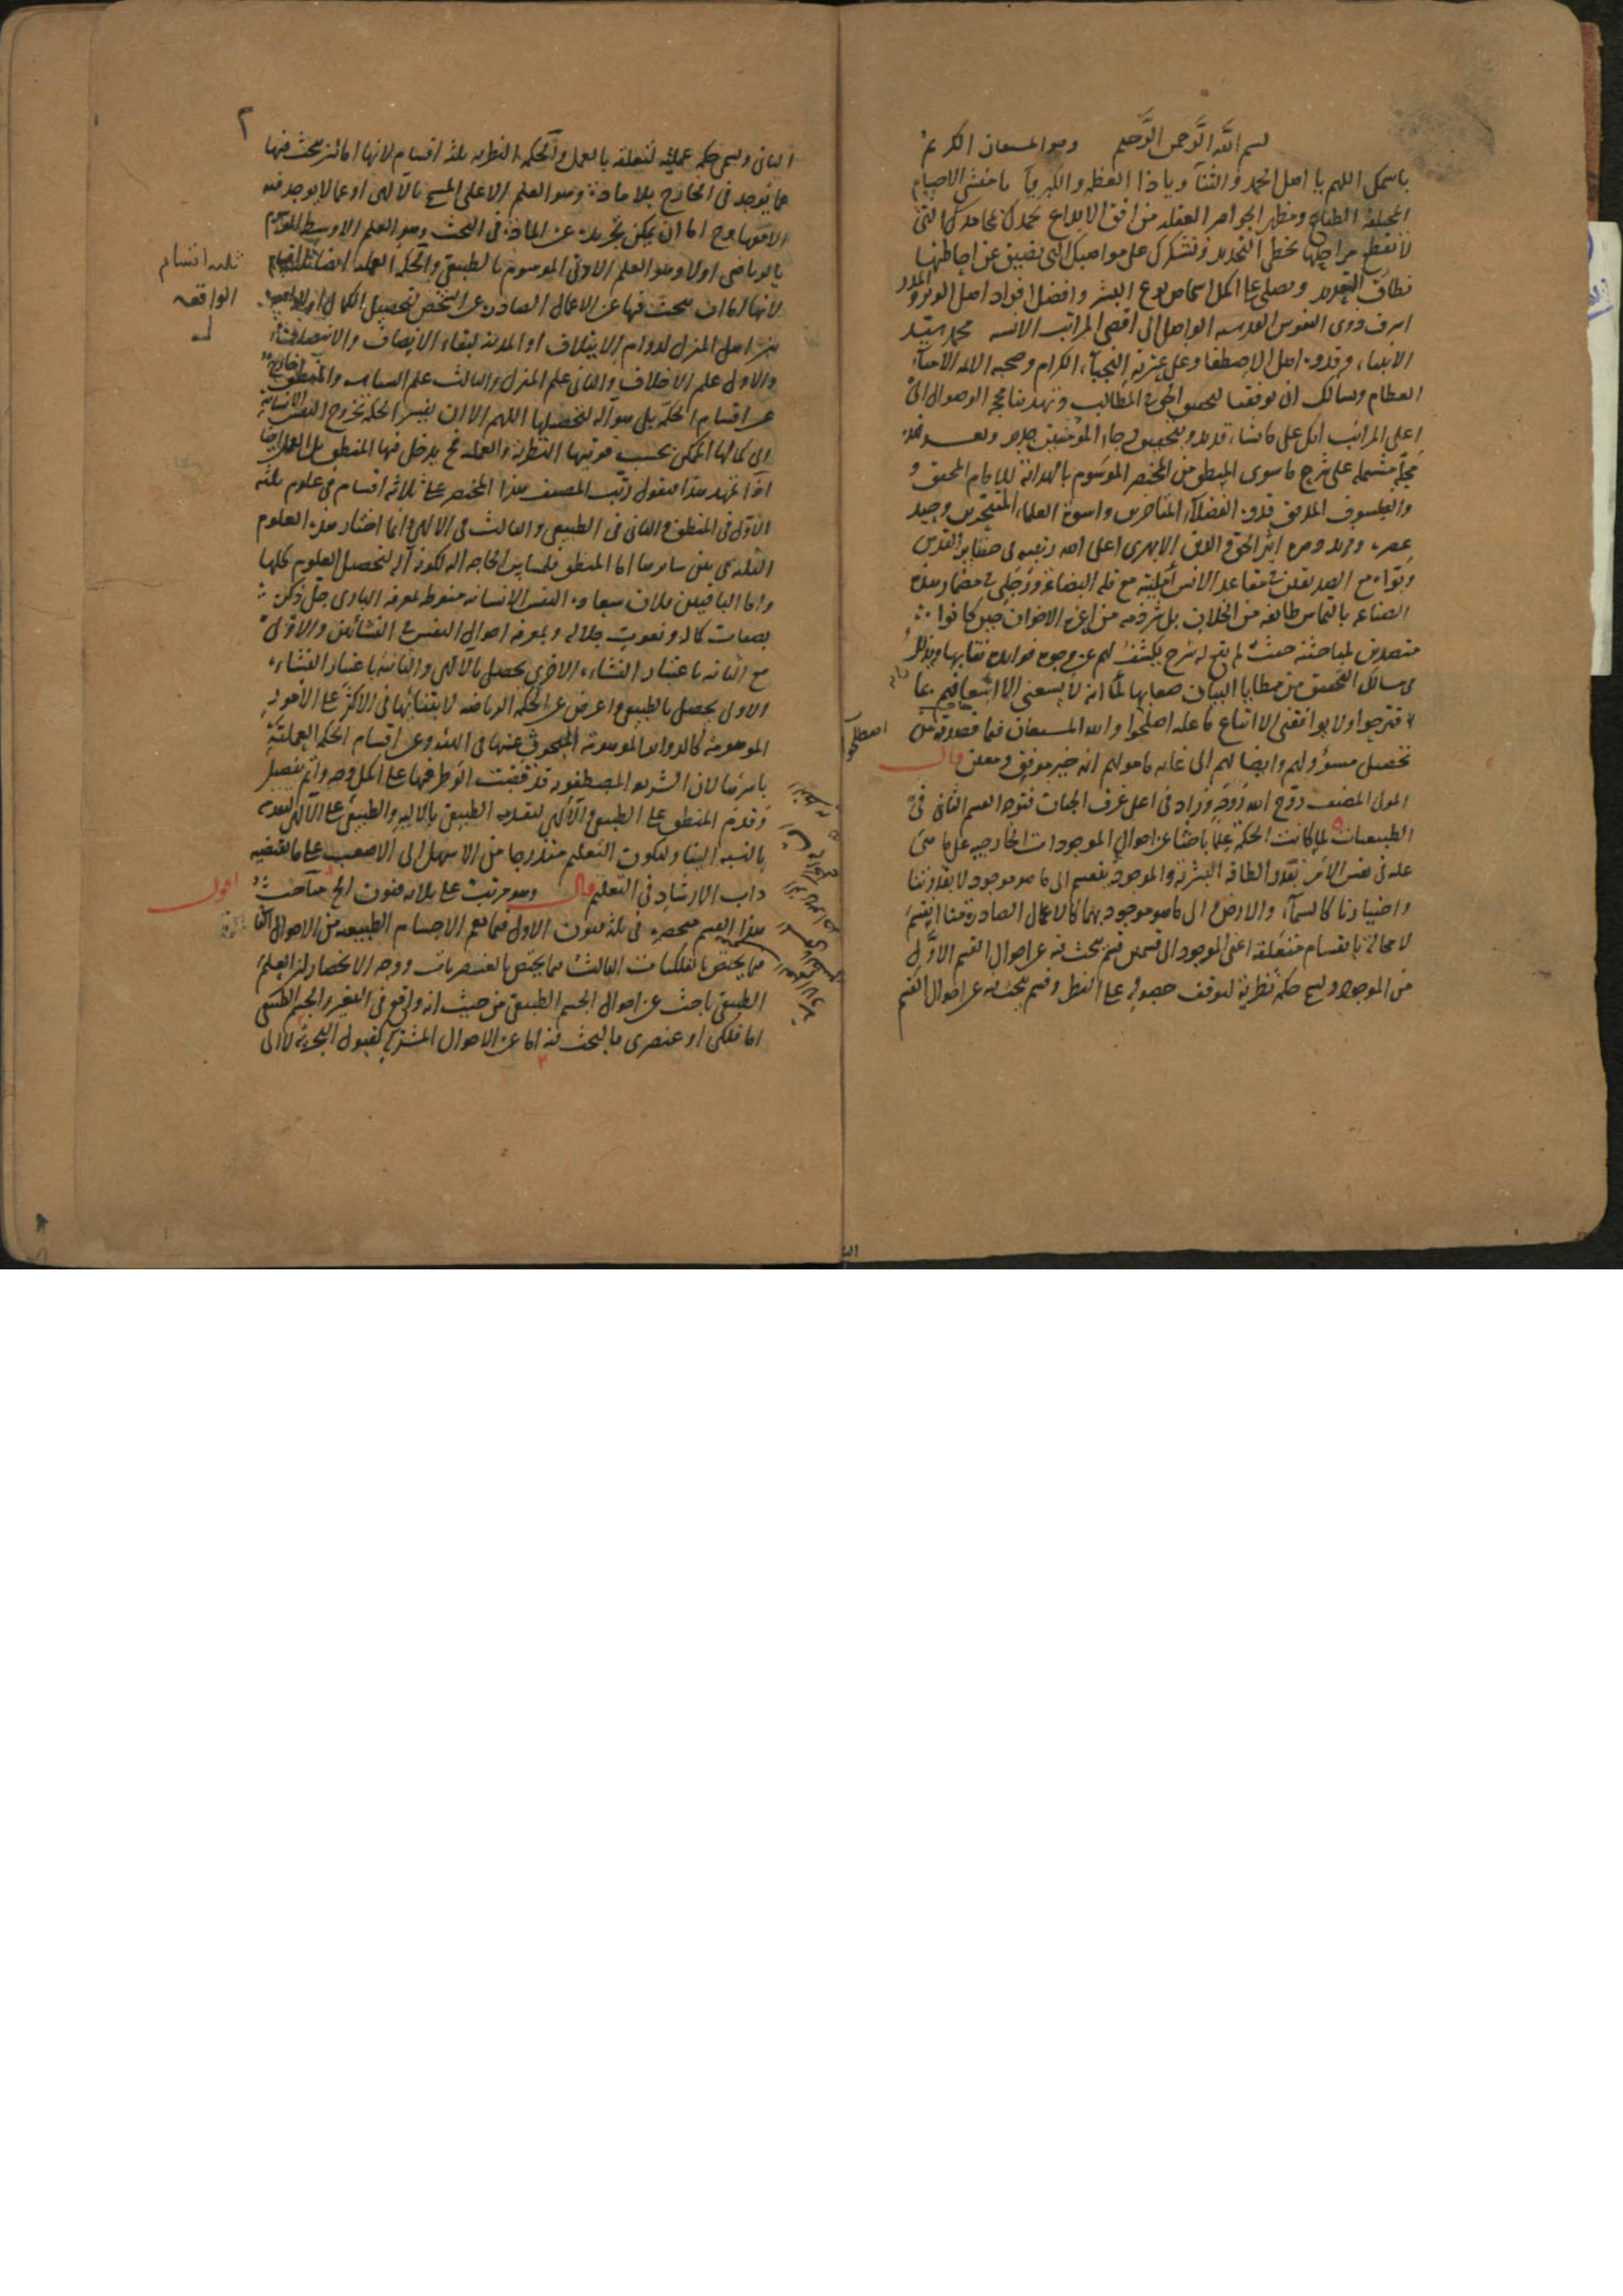 بسم الله الرحمن الرحيم وهو المستعان الكريم
باسمك اللهم يا اهل الحمد والثناء ويا ذا العظمة والكبرياء يا منشئ الاجسام
ومظهر الجواهر العقليه من افق الابداع نحمدك محامدك التى
لا تقطع مراحلها بخطى التحديد ونشكرك على مواهبك التى تضيق عن احاطتها
نطاق التعديد ونصلى على اكمل اشخاص نوع البشر وافضل افراد اهل الوبر والمدر
اشرف ذوى النفوس القدسيه الواصل الى اقصى المراتب الانسيه محمد سيد
الانبياء وقدوة اهل الاصطفا وعلى عترته النجباء الكرام وصحبه الامناء
العظام ونسالك ان توفقنا لتحقيق المطالب وتهدينا الوصول الى
اعلى المراتب انك على ما تشاء قدير وبتحقيق رجاء المؤمنين جدير وبعد فهذه
مجلة مشتملة على شرح ما سوى المنطق من المختصر الموسوم بالهداية للامام المحقق و
والفيلسوف المدقق قدوة الفضلاء المتاخرين واسوة العلماء المتبحرين وحيد
عصره وفريد دهره اثير الحق والدين الابهرى اعلى الله رتبته فى حضاير القدس
وبواه مع الصديقين مقاعد الانس امليته مع قلة البضاعة فى مضمار هذه
الصناعه بالتماس طائفه من الخلان بل شرذمه من اعزة الاخوان حين كانوا
متصدين لمباحثته حيث لم يتح له شرح يكشف لهم عن وجوه فوايده نقابها ويذلل
مسالك التحقيق من مطايا البيان صعابها لما انه لا يسعنى الا اسعافهم بما
اقترحوا ولا يوافقنى الا اتباع ما عليه اصطلحوا والله المستعان فيما قصدوه من
تحصيل مسؤولهم وايصالهم الى غايه مامولهم انه خير موفق ومعين قال
المولى المصنف روح الله روحه وزاد فى اعلى غرف الجنات فتوحه القسم الثانى فى
الطبيعيات لما كانت الحكمة علما باحثا عن احوال الموجودات الخارجيه على ما هى
عليه فى نفس الامر بقدر الطاقه البشرية والموجود ينقسم الى ما هو موجود لا بقدرتنا
واختيارنا كالسماء والارض والى ما هو موجود بهما كالاعمال الصادرة منا انقسم
لا محالة بانقسام متعلقه اعنى الموجود الى قسمين قسم يبحث فيه عن احوال القسم الاول
من الموجود وليسم حكمة نظرية لتوقف حصوله على النظر وقسم يبحث فيه عن احوال القسم
اصطلحوا
٢
الثانى وليسم حكمه عمليه لتعلقه بالعمل والحكمه النظريه ثلثه اقسام لانها اما ان يبحث فيها
عما يوجد فى الخارج بلا مادة وهو العلم الاعلى المسمى بالالهى او عما لا يوجد فيه
الا معها وح اما ان يمكن تجريده عن المادة فى البحث وهو العلم الاوسط الموسوم
بالرياضى او لا وهو العلم الادنى الموسوم بالطبيعى والحكمه العمليه ايضا ثلثه اقسام
لانها اما ان يبحث فيها عن الاعمال الصادرة عن الشخص لتحصيل الكمال
من اهل المنزل لدوام الايتلاف او المدينه لبقاء الانصاف والانتصاف
والاول علم الاخلاق والثانى علم المنزل والثالث علم السياسه والمنطق خارج
عن اقسام الحكمة بل هو آله لتحصيلها اللهم الا ان يفسر الحكمه بخروج النفس الانسانية
الى كمالها الممكن بحسب قوتيها النظريه والعمليه فح يدخل فيها المنطق بل العمل ايضا
اذا تمهد هذا فنقول رتب المصنف هذا المختصر على ثلاثه اقسام فى علوم ثلثه
الاول فى المنطق والثانى فى الطبيعى والثالث فى الالهى وانما اختار هذه العلوم
الثلثه من بين سايرها اما المنطق فلمساس الحاجه اليه لكونه آله لتحصيل العلوم كلها
واما الباقيين فلان سعادة النفس الانسانيه منوط بمعرفه البارى جل ذكره
بصفات كماله ونعوت جلاله وبمعرفه احوال النفس فى النشاتين والاول
مع الثانيه باعتبار النشاء الاخرى يحصل بالالهى والثانية باعتبار النشاء
الاولى يحصل بالطبيعى واعرض عن الحكمه الرياضيه لابتنائها فى الاكثر على الامور
الموهومة كالدواير الموهومة المبحوث عنها فى الهيئه وعن اقسام الحكمه العملية
باسرها لان الشريعه المصطفويه قد قضت الوطر فيها على اكمل وجه واتم تفصيل
وقدم المنطق على الطبيعى والالهى والطبيعى على الالهى
بالنسبه الينا وليكون التعليم متدرجا من الاسهل الى الاصعب على ما يقتضيه
داب الارشاد فى التعليم قال وهو مرتب على ثلاثه فنون الخ مباحث
هذا القسم منحصره فى ثلثه فنون الاول فيما يعم الاجسام الطبيعيه من الاحوال الثانى
فيما يختص بالفلكيات الثالث فيما يختص بالعنصريات ووجه الانحصار ان العلم
الطبيعى باحث عن احوال الجسم الطبيعى من حيث انه واقع فى التغير والجسم الطبيعى
اما فلكى او عنصرى فالبحث فيه اما عن الاحوال المشتركه كقبول التجزئة لا الى
ثلثه اقسام
الواقعه
اقول